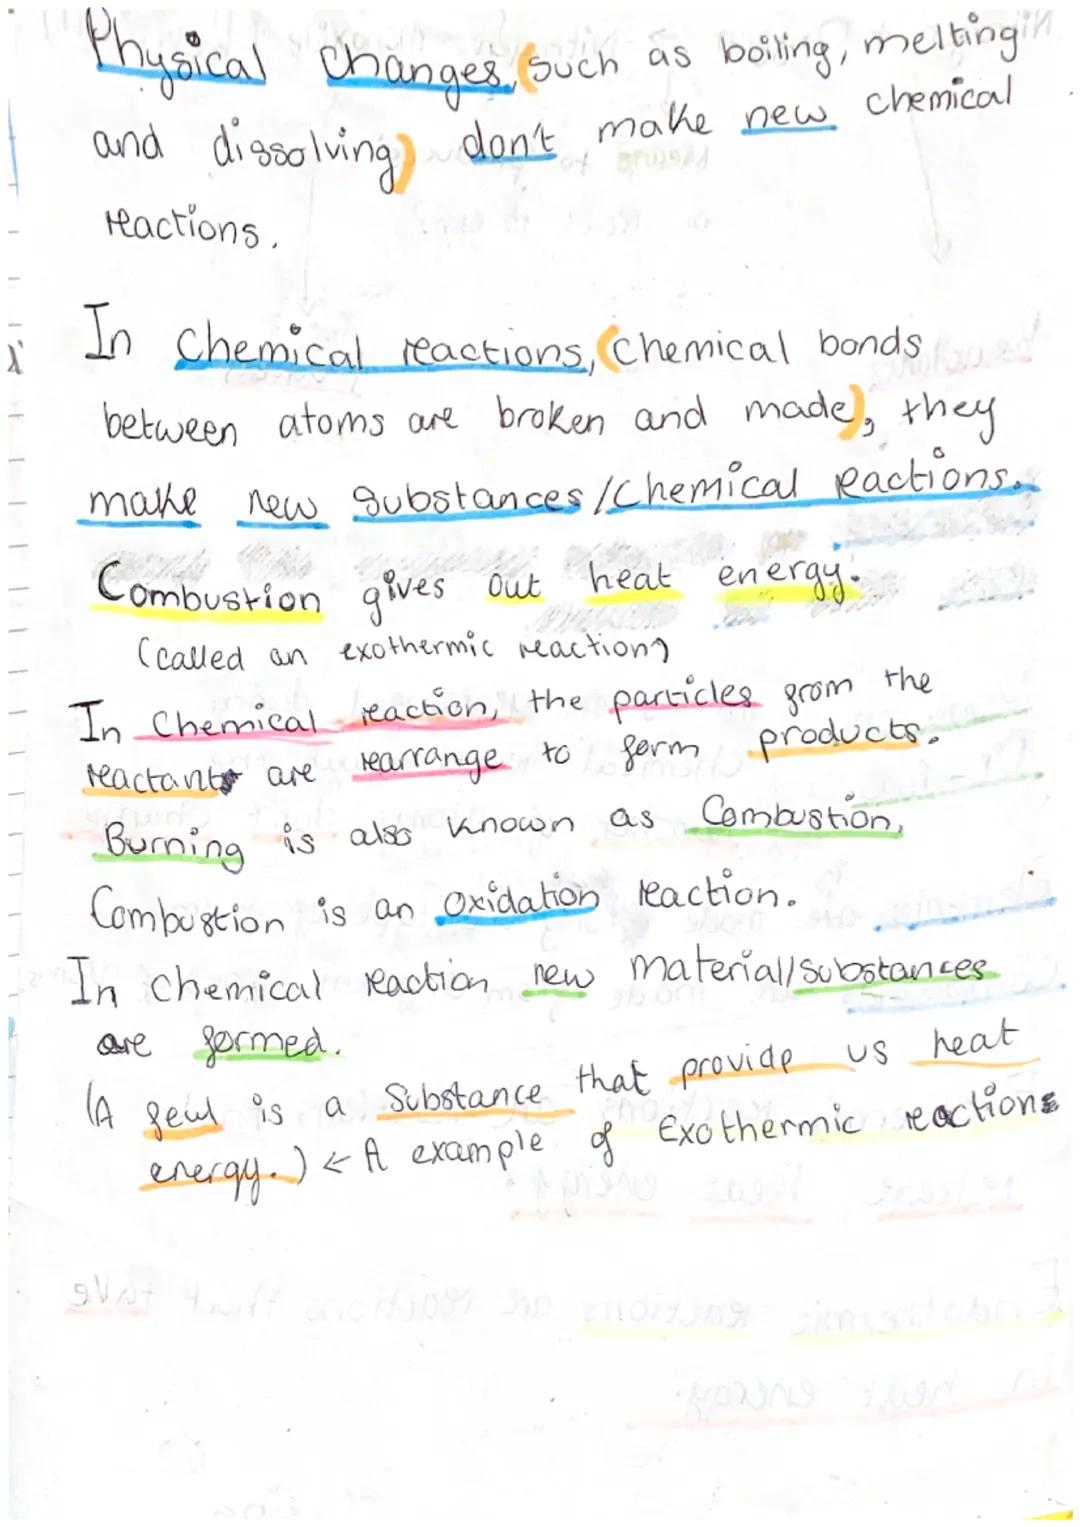 Physical Changes, (such as boiling, melting
and dissolving) don't make new chemical
reactions.
In Chemical reactions, (Chemical bonds
between atoms are broken and made), they
make new Substances/Chemical Reactions.
Combustion gives out heat energy.
(called an exothermic reaction)
In Chemical reaction, the particles from the
reactants are rearrange to form products.
Burning is also known as Combustion,
Combustion is an Oxidation reaction.
In Chemical reaction new material/substances
are formed.
(A feul is a Substance that provide us heat
energy.) ← A example of Exothermic reactions
Endothermic reactions are reactions that take
in heat energy.